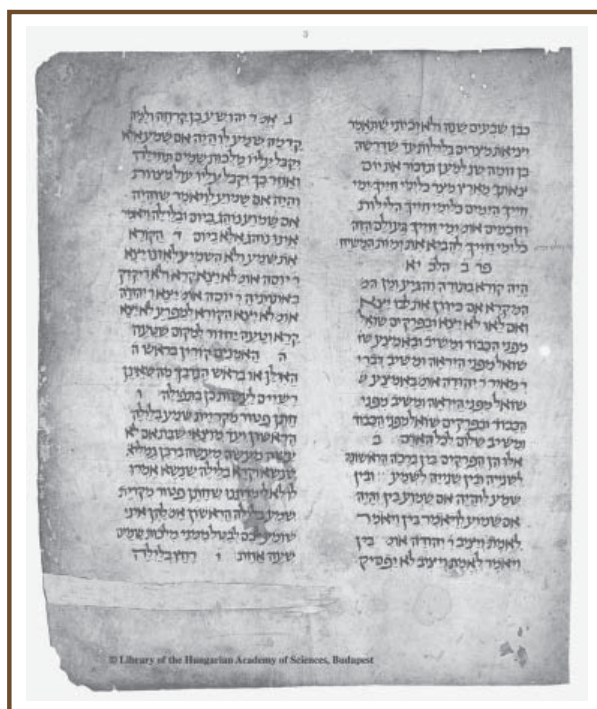 3
כבן שבעים שנה ולא זכיתי שתאמר
יציאת מצרים בלילות עד שדרשה
בן זומה שנ למען תזכור את יום
צאתך מארץ מצר כל ימי חייך ימי
חייך הימים כל ימי חייך הלילות
וחכמים אומ ימי חייך העולם הזה
כל ימי חייך להביא את ימות המשיח
פר ב הלכ יא
היה קורא בתורה והגיע זמן המ
המקרא אם כיוון את לבו יצא
ואם לאו לא יצא ובפרקים שואל
מפני הכבוד ומשיב ובאמצע שו
שואל מפני היראה ומשיב דברי
ר מאיר ר יהודה אומ באמצע ש
שואל מפני היראה ומשיב מפני
הכבוד ובפרקים שואל מפני הכבוד
ומשיב שלום לכל האדם ב
אלו הן הפרקים בין ברכה הראשונה
לשנייה ובין שנייה לשמע ובין
שמע לוהיה אם שמוע בין והיה
אם שמוע לויאמר בין ויאמר
לאמת ויציב ר יהודה אומ בין
ויאמר לאמת ויציב לא יפסיק
ג אמ ר יהושע בן קרחה ולמה
קדמה שמע לוהיה אם שמוע אלא
יקבל עליו מלכות שמים תחילה
ואחר כך יקבל עליו עול מצוות
והיה אם שמוע לויאמר שוהיה
אם שמוע נוהג ביום ובלילה ויאמר
אינו נוהג אלא ביום ד הקורא
את שמע ולא השמיע לאוזנו יצא
ר יוסה אומ לא יצא קרא ולא דיקדק
באותותיה ר יוסה אומ יצא ר יהודה
אומ לא יצא הקורא למפריע לא יצא
קרא וטעה יחזור למקום שטעה
ה האמנים קורין בראש ה
האילן או בראש הנדבך מה שאינן
רשויים לעשות כן בתפילה ו
חתן פטור מקריית שמע בלילה
הראשון ועד מוצאי שבת אם לא
עשה מעשה מעשה ברבן גמליא
שנשא וקרא בלילה שנשא אמרו
לו לא לימדתנו שחתן פטור מקרית
שמע בלילה הראשון אמ להן איני
שומע לכם לבטל ממני מלכות שמים
שעה אחת ז רחץ בלילה
© Library of the Hungarian Academy of Sciences, Budapest